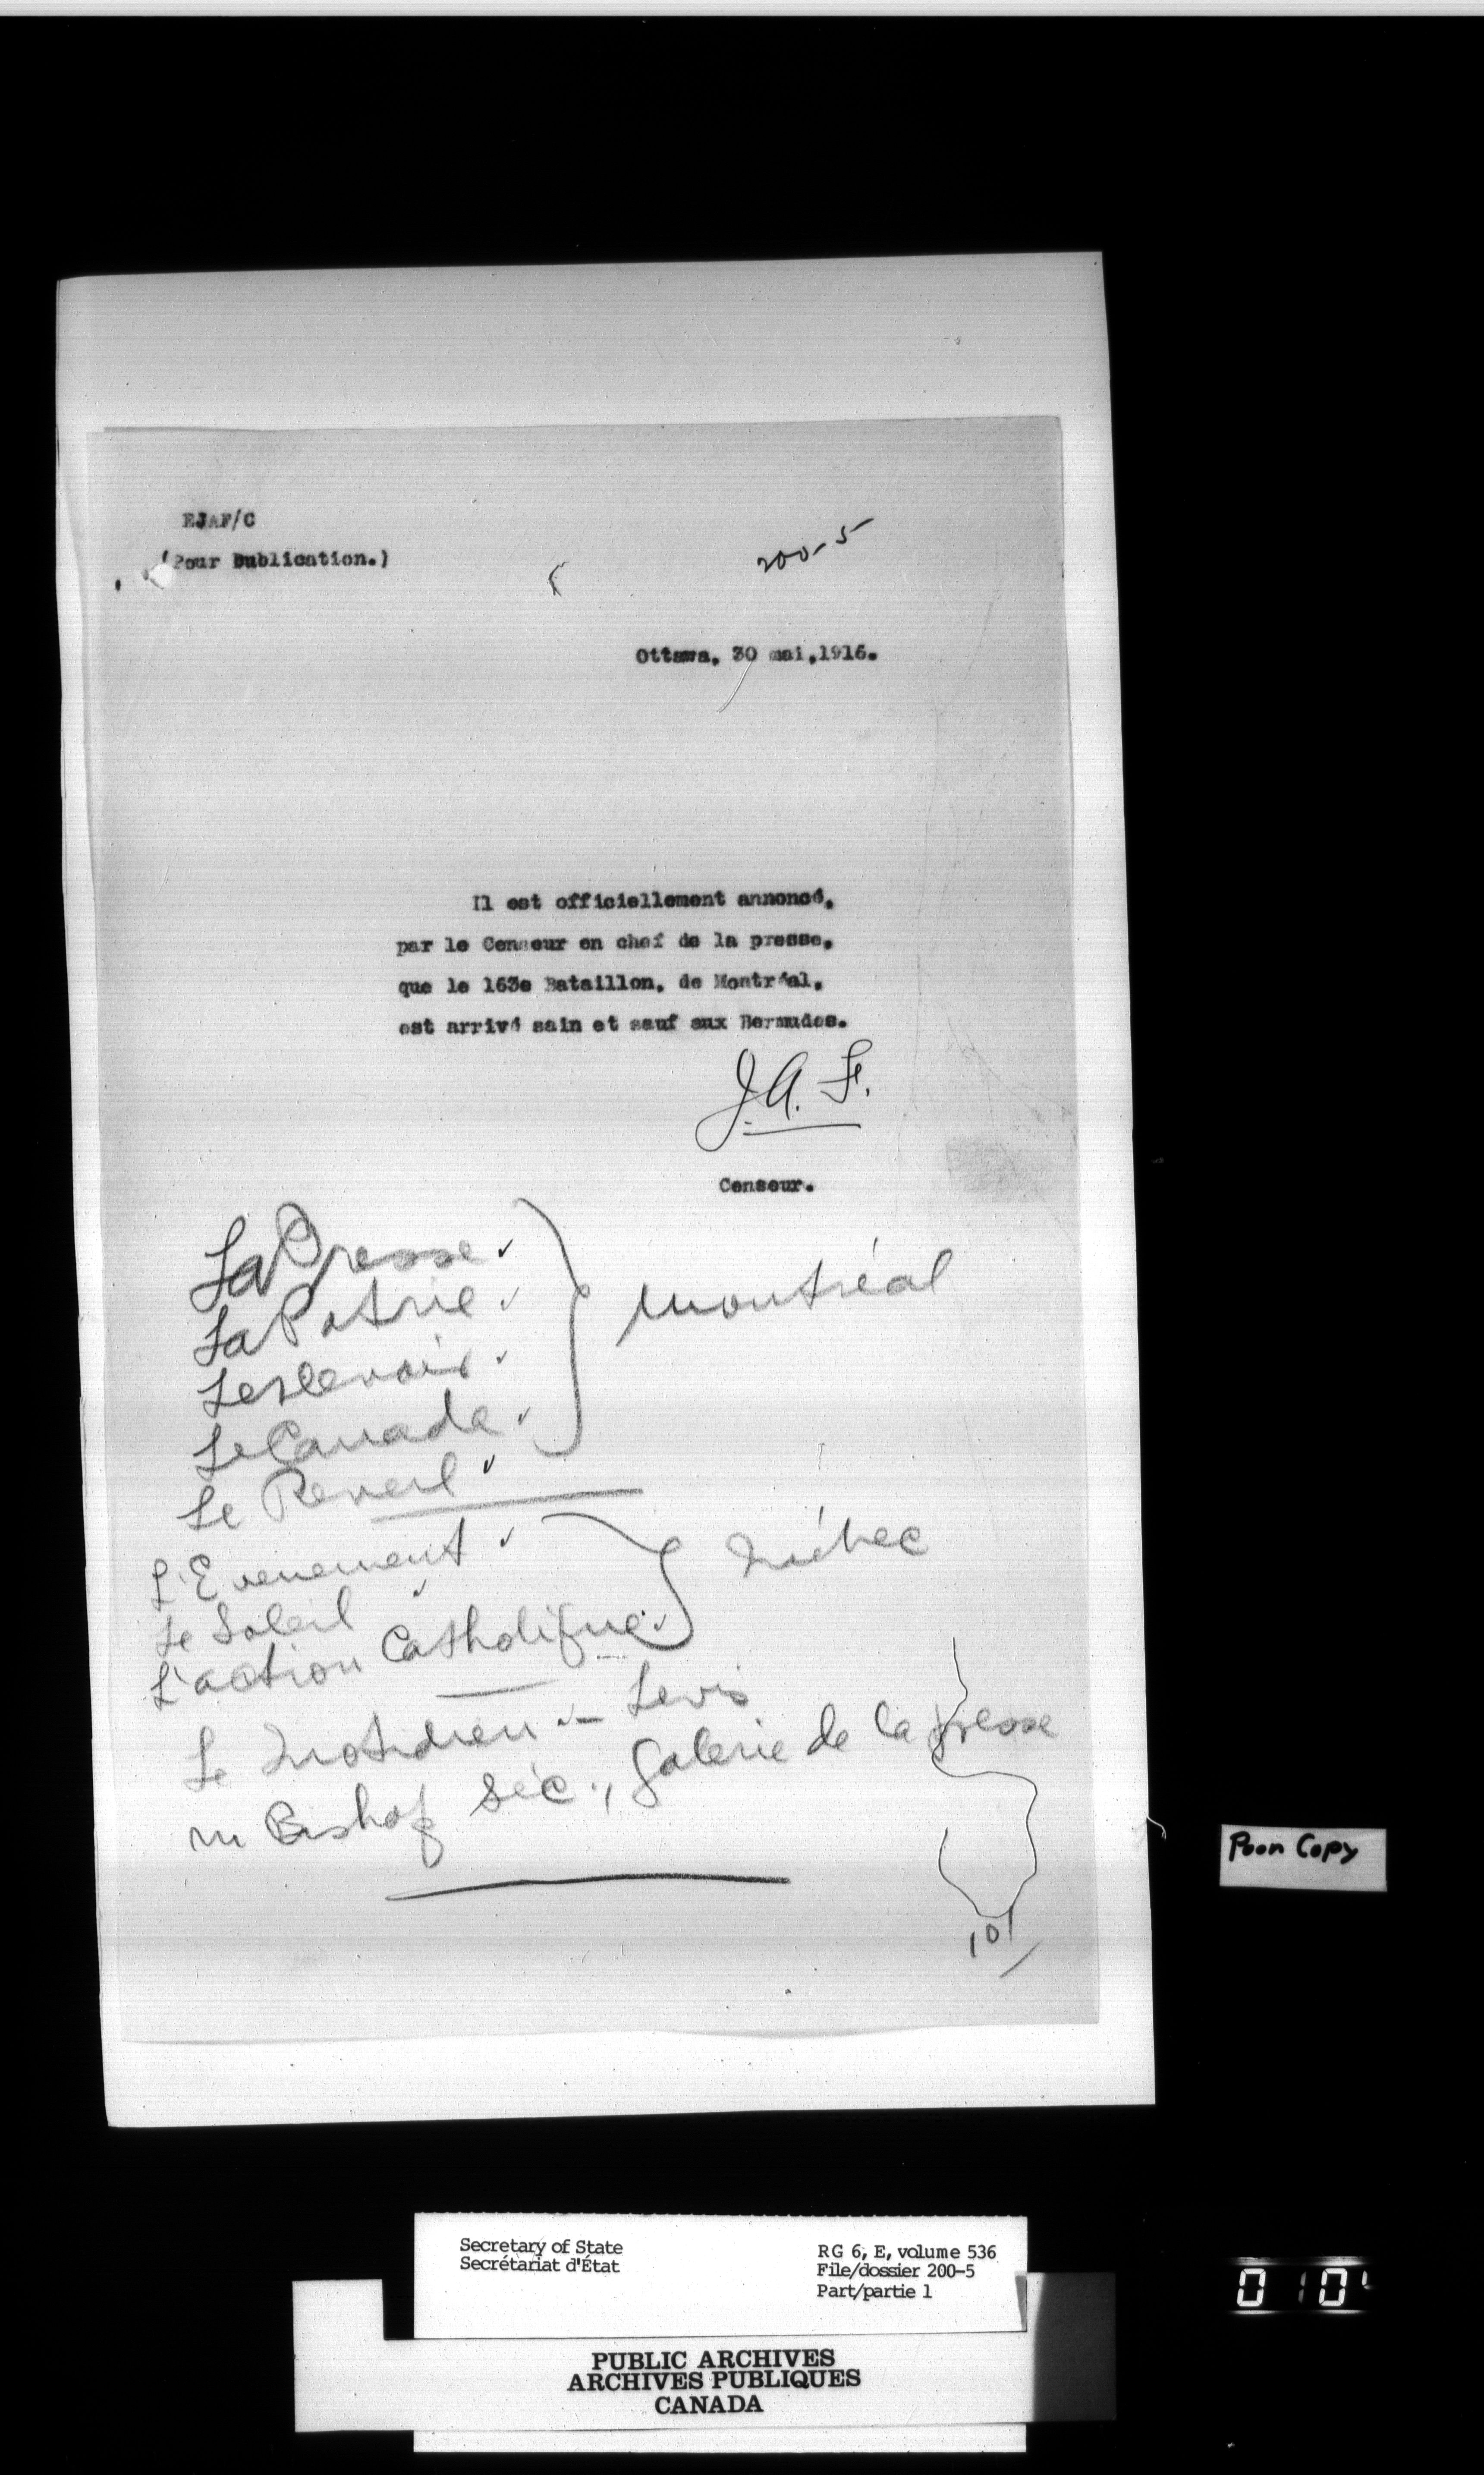 EJAF/C
(Pour Publication.)
200-5
Ottawa, 30 mai,1916.
Il est officiellement annoncé,
par le Censeur en chef de la presse,
que le 163e Bataillon, de Montréal,
est arrivé sain et sauf aux Bermudes.
J.A.F.
Censeur.
La Presse
La Patrie
Le Devoir
Le Canada
Montréal
Le Reveil
L'Evenement
Le Soleil
L'action Catholique
Québec
Le Quotidien — Levis
M Bishop Séc., Galerie de la presse
101
Poor Copy
Secretary of State
Secrétariat d'État
RG 6, E, volume 536
File/dossier 200-5
Part/partie 1
PUBLIC ARCHIVES
ARCHIVES PUBLIQUES
CANADA